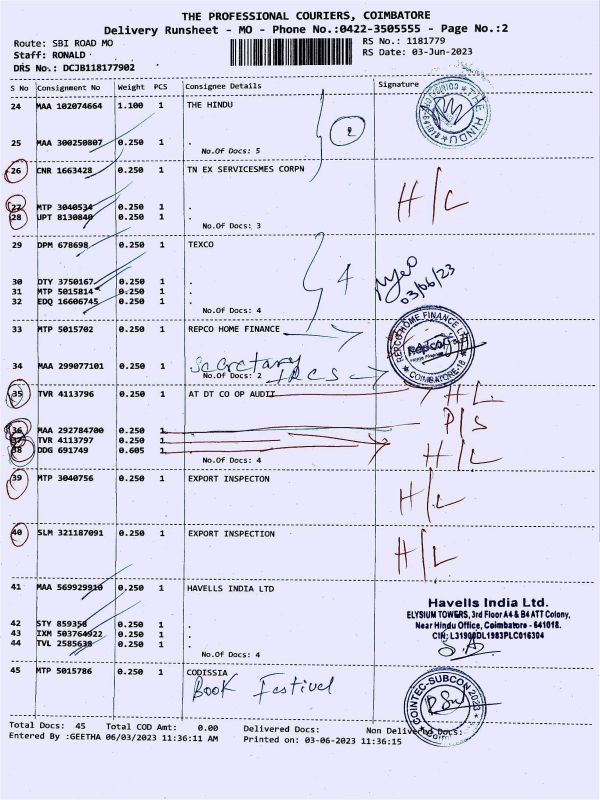 THE PROFESSIONAL COURIERS, COIMBATORE
Delivery Runsheet - MO - Phone No.:0422-3505555 - Page No.:2
Route: SBI ROAD MO
RS No.: 1181779
Staff: RONALD
RS Date: 03-Jun-2023
DRS No.: DCJB118177902
S No Consignment No Weight PCS Consignee Details Signature
24 MAA 102074664 1.100 1 THE HINDU
THE HINDU
2
25 MAA 300250807 0.250 1 .
No.Of Docs: 5
26 CNR 1663428 0.250 1 TN EX SERVICESMES CORPN
H/L
27 MTP 3040534 0.250 1 .
28 UPT 8130840 0.250 1 .
No.Of Docs: 3
29 DPM 678698 0.250 1 TEXCO
4
03/06/23
30 DTY 3750167 0.250 1 .
31 MTP 5015814 0.250 1 .
32 EDQ 16606745 0.250 1 .
No.Of Docs: 4
33 MTP 5015702 0.250 1 REPCO HOME FINANCE
REPCO HOME FINANCE LTD
COIMBATORE-18
Secretary
34 MAA 299077101 0.250 1 .
No.Of Docs: 2
35 TVR 4113796 0.250 1 AT DT CO OP AUDIT H/L
36 MAA 292784700 0.250 1 P/S
37 TVR 4113797 0.250 1
38 DDG 691749 0.605 1 H/L
No.Of Docs: 4
39 MTP 3040756 0.250 1 EXPORT INSPECTON
H/L
40 SLM 321187091 0.250 1 EXPORT INSPECTION
H/L
41 MAA 569929910 0.250 1 HAVELLS INDIA LTD
Havells India Ltd.
ELYSIUM TOWERS, 3rd Floor A4 & B4 ATT Colony,
Near Hindu Office, Coimbatore - 641018.
CIN; L31900DL1983PLC016304
42 STY 859358 0.250 1 .
43 IXM 503764922 0.250 1 .
44 TVL 2585638 0.250 1 .
No.Of Docs: 4
45 MTP 5015786 0.250 1 CODISSIA
Book Festival
COINTEC-SUBCON 2023
Coimbatore
Total Docs: 45 Total COD Amt: 0.00 Delivered Docs: Non Delivered Docs:
Entered By :GEETHA 06/03/2023 11:36:11 AM Printed on: 03-06-2023 11:36:15